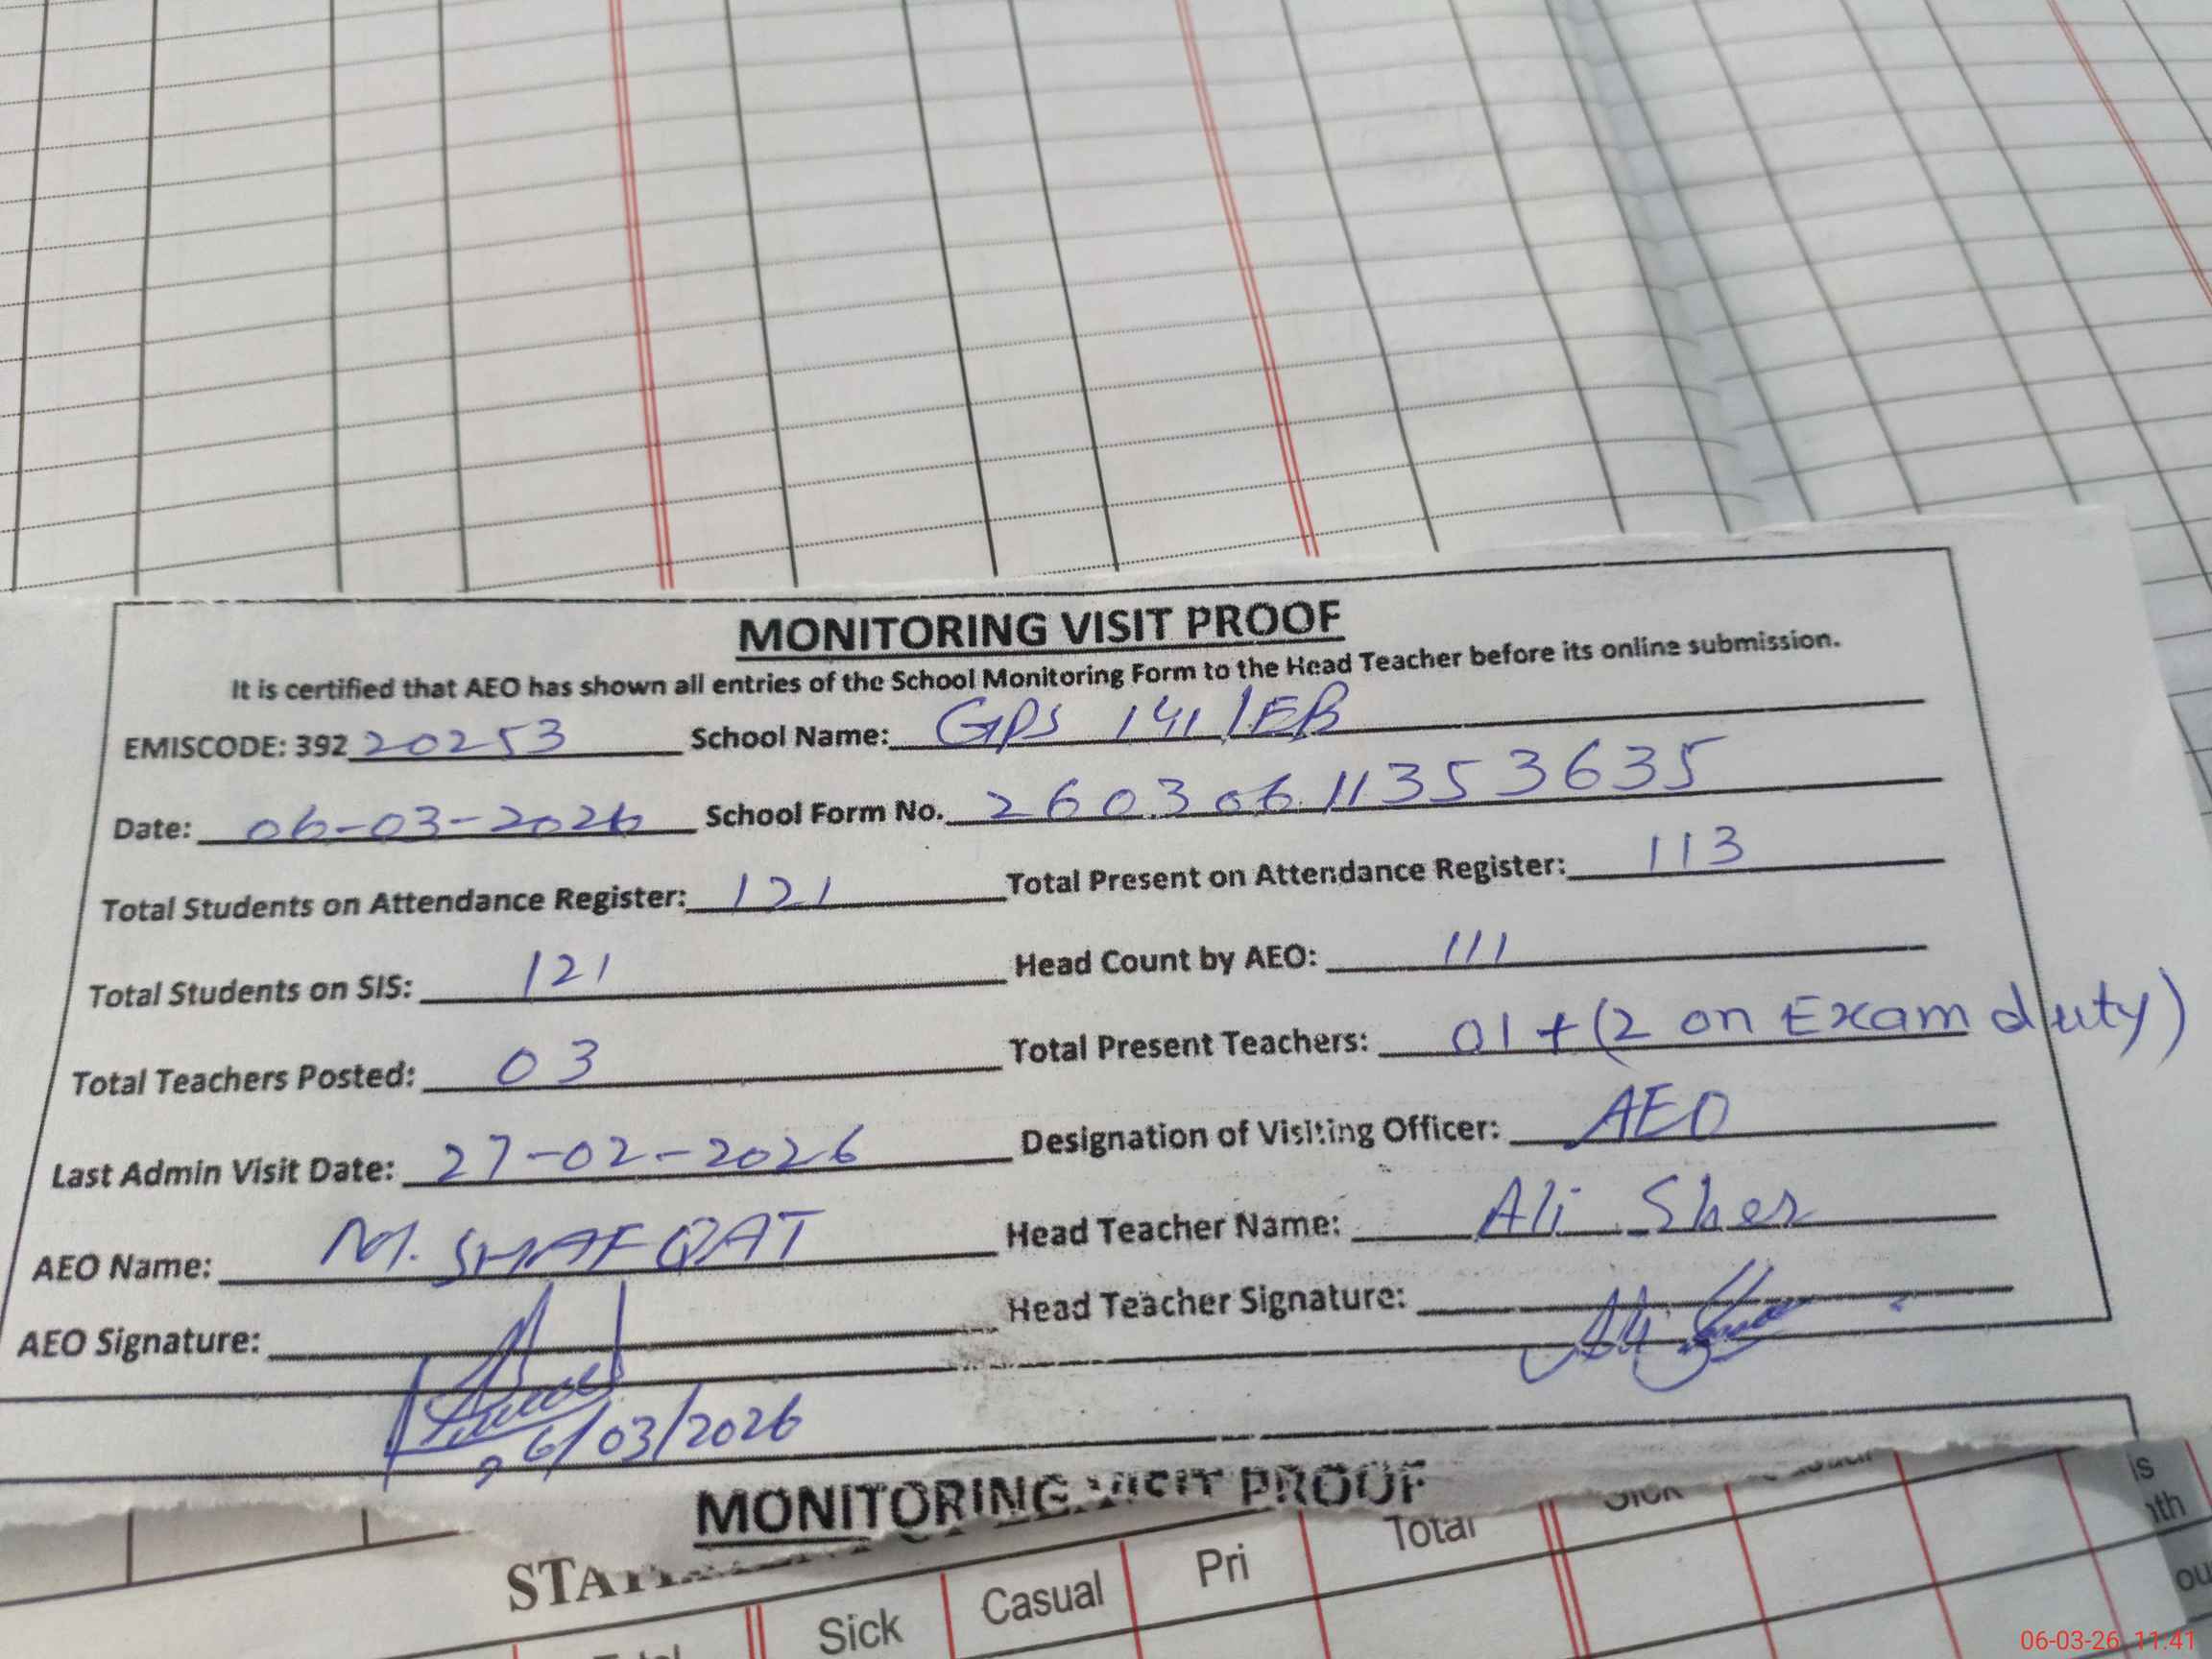 MONITORING VISIT PROOF
It is certified that AEO has shown all entries of the School Monitoring Form to the Head Teacher before its online submission.
EMISCODE: 39220253 School Name: GPS 141/EB
Date: 06-03-2026 School Form No. 26030611353635
Total Students on Attendance Register: 121 Total Present on Attendance Register: 113
Total Students on SIS: 121 Head Count by AEO: 111
Total Teachers Posted: 03 Total Present Teachers: 01+(2 on Exam duty)
Last Admin Visit Date: 27-02-2026 Designation of Visiting Officer: AEO
AEO Name: M. SHAFQAT Head Teacher Name: Ali Sher
AEO Signature: Head Teacher Signature:
06/03/2026
MONITORING VISIT PROOF
Sick Casual Pri Total
06-03-26 11:41